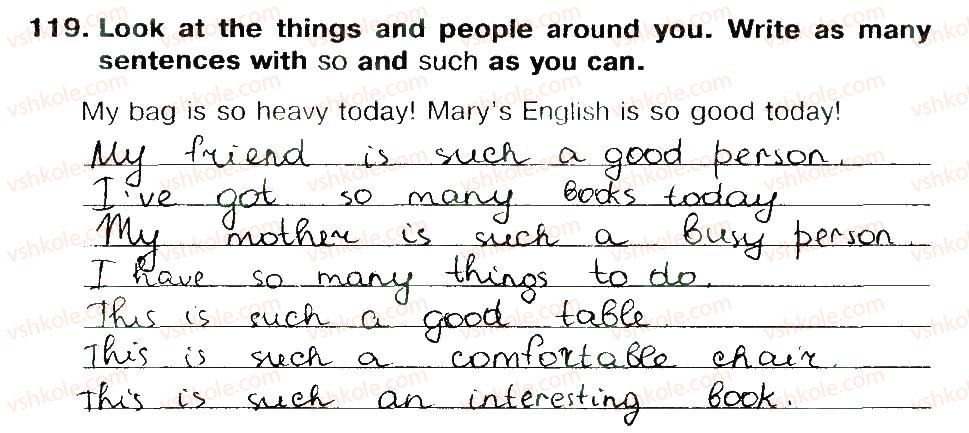 119. Look at the things and people around you. Write as many
sentences with so and such as you can.
My bag is so heavy today! Mary's English is so good today!
My friend is such a good person.
I've got so many books today
My mother is such a busy person.
I have so many things to do.
This is such a good table.
This is such a comfortable chair.
This is such an interesting book.